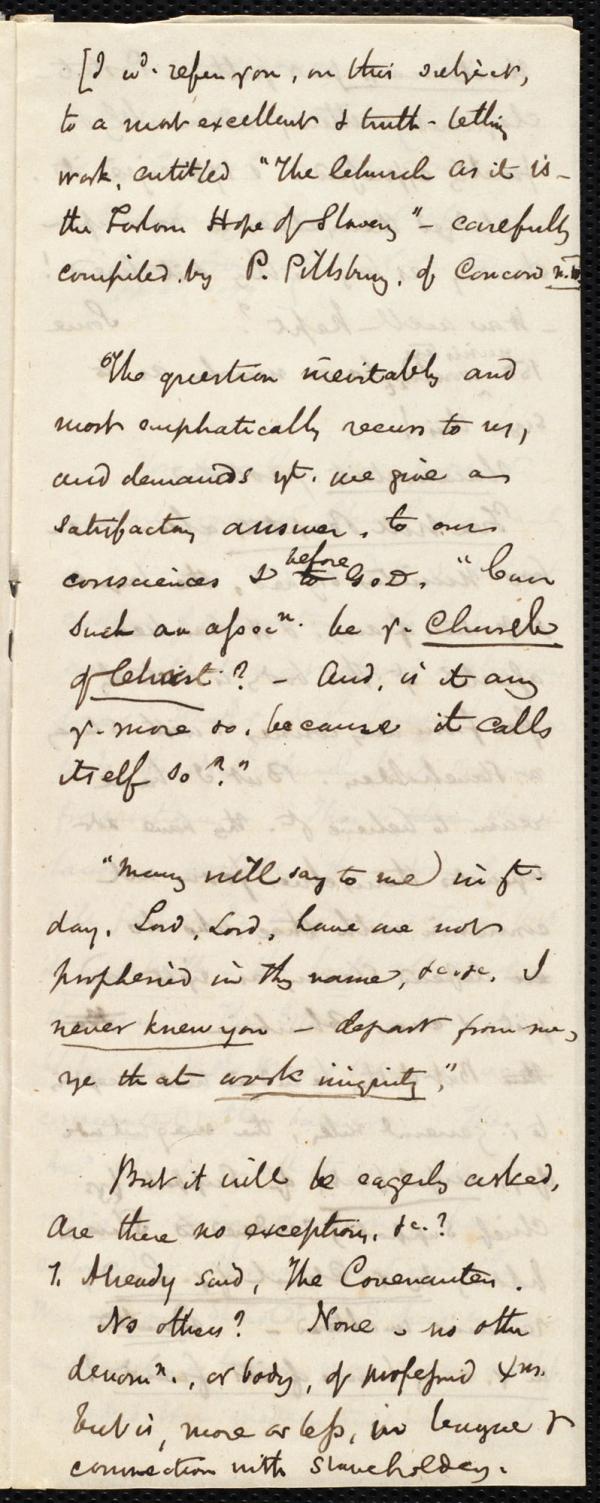 [I wd. refer you, on this subject,
to a most excellent & truth-telling
work, entitled "The Church as it is –
the Forlorn Hope of Slavery" – carefully
compiled by P. Pillsbury, of Concord N.H.
The question inevitably and
most emphatically recurs to us,
and demands yt. we give a
satisfactory answer, to our
consciences & before God, "Can
such an assocn. be ye. Church
of Christ? – And, is it any
ye. more so, because it calls
itself so?"
"Many will say to me in yt.
day, Lord, Lord, have we not
prophesied in thy name, &c. &c. I
never knew you – depart from me,
ye that work iniquity."
But it will be eagerly asked,
Are there no exceptions, &c.?
1. Already said, The Covenanters.
No others? None – no other
denomn., or body, of professed Xns.
but is, more or less, in league &
connection with slaveholders.